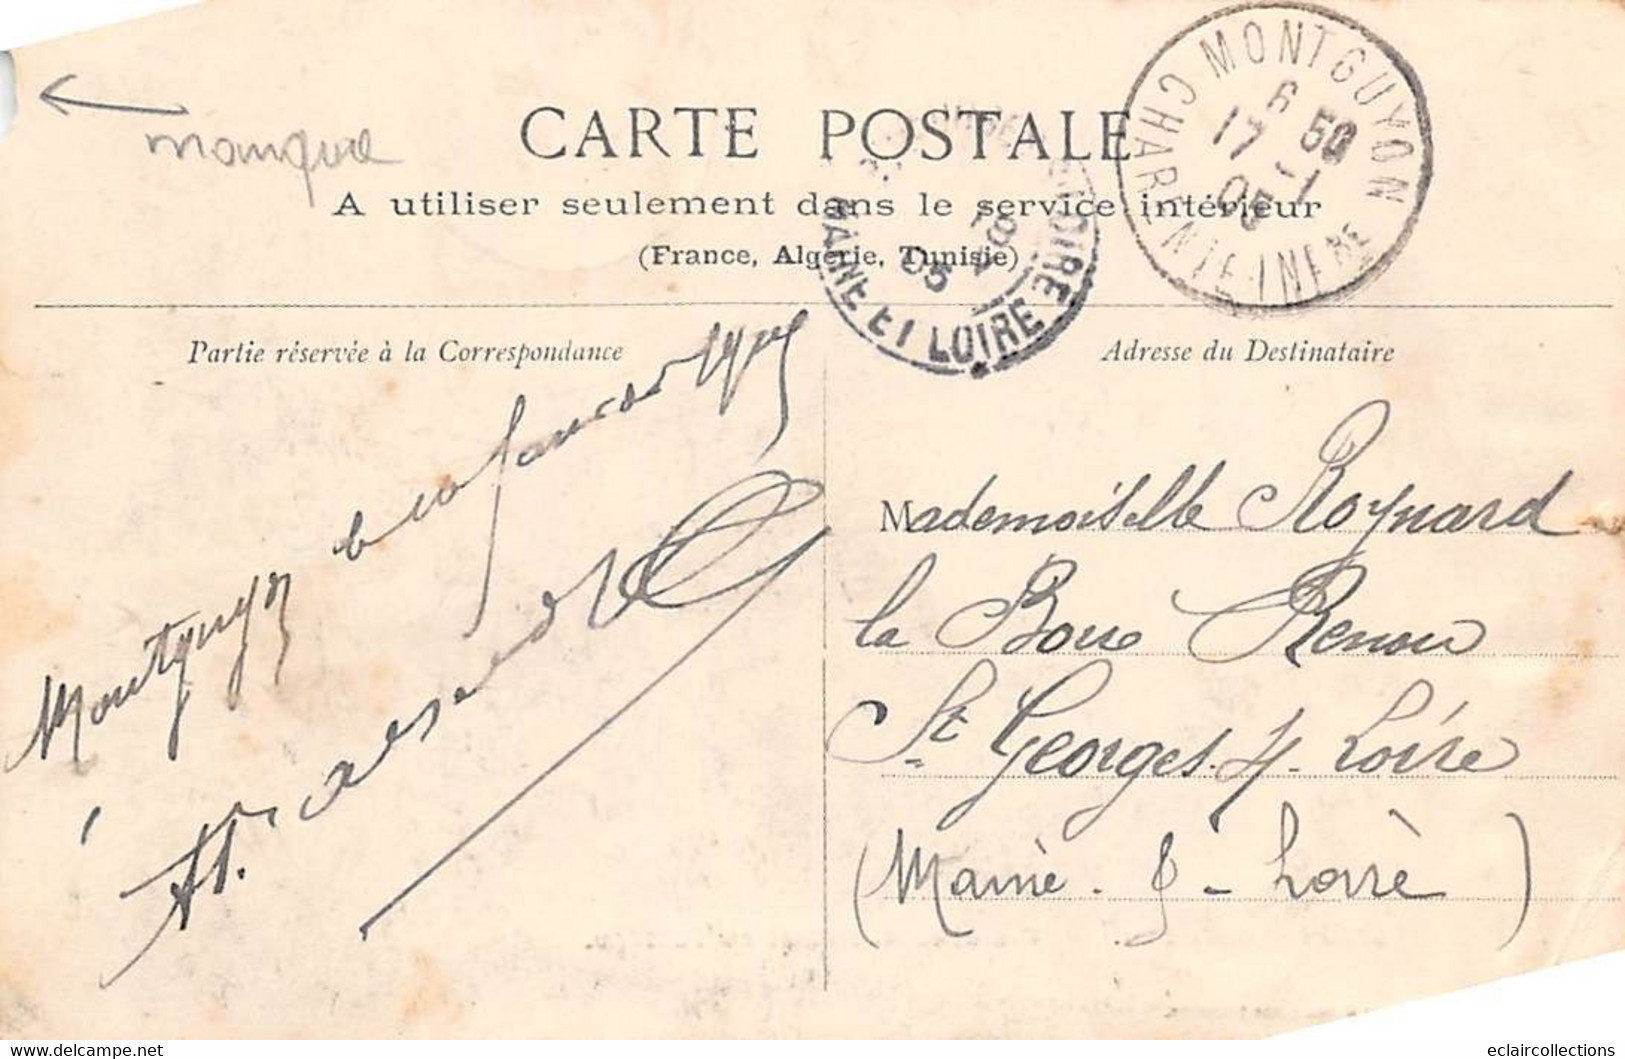 manque
CARTE POSTALE
A utiliser seulement dans le service intérieur
(France, Algérie, Tunisie)
MONTGUYON
6 50
17 - 1
05
CHARENTE-INFRE
LOIRE
18
05
MAINE ET LOIRE
Partie réservée à la Correspondance
Adresse du Destinataire
Montguyon le
Mademoiselle Roynard
la Boue Renou
St Georges s/ Loire
(Maine & Loire)
www.delcampe.net
eclaircollections